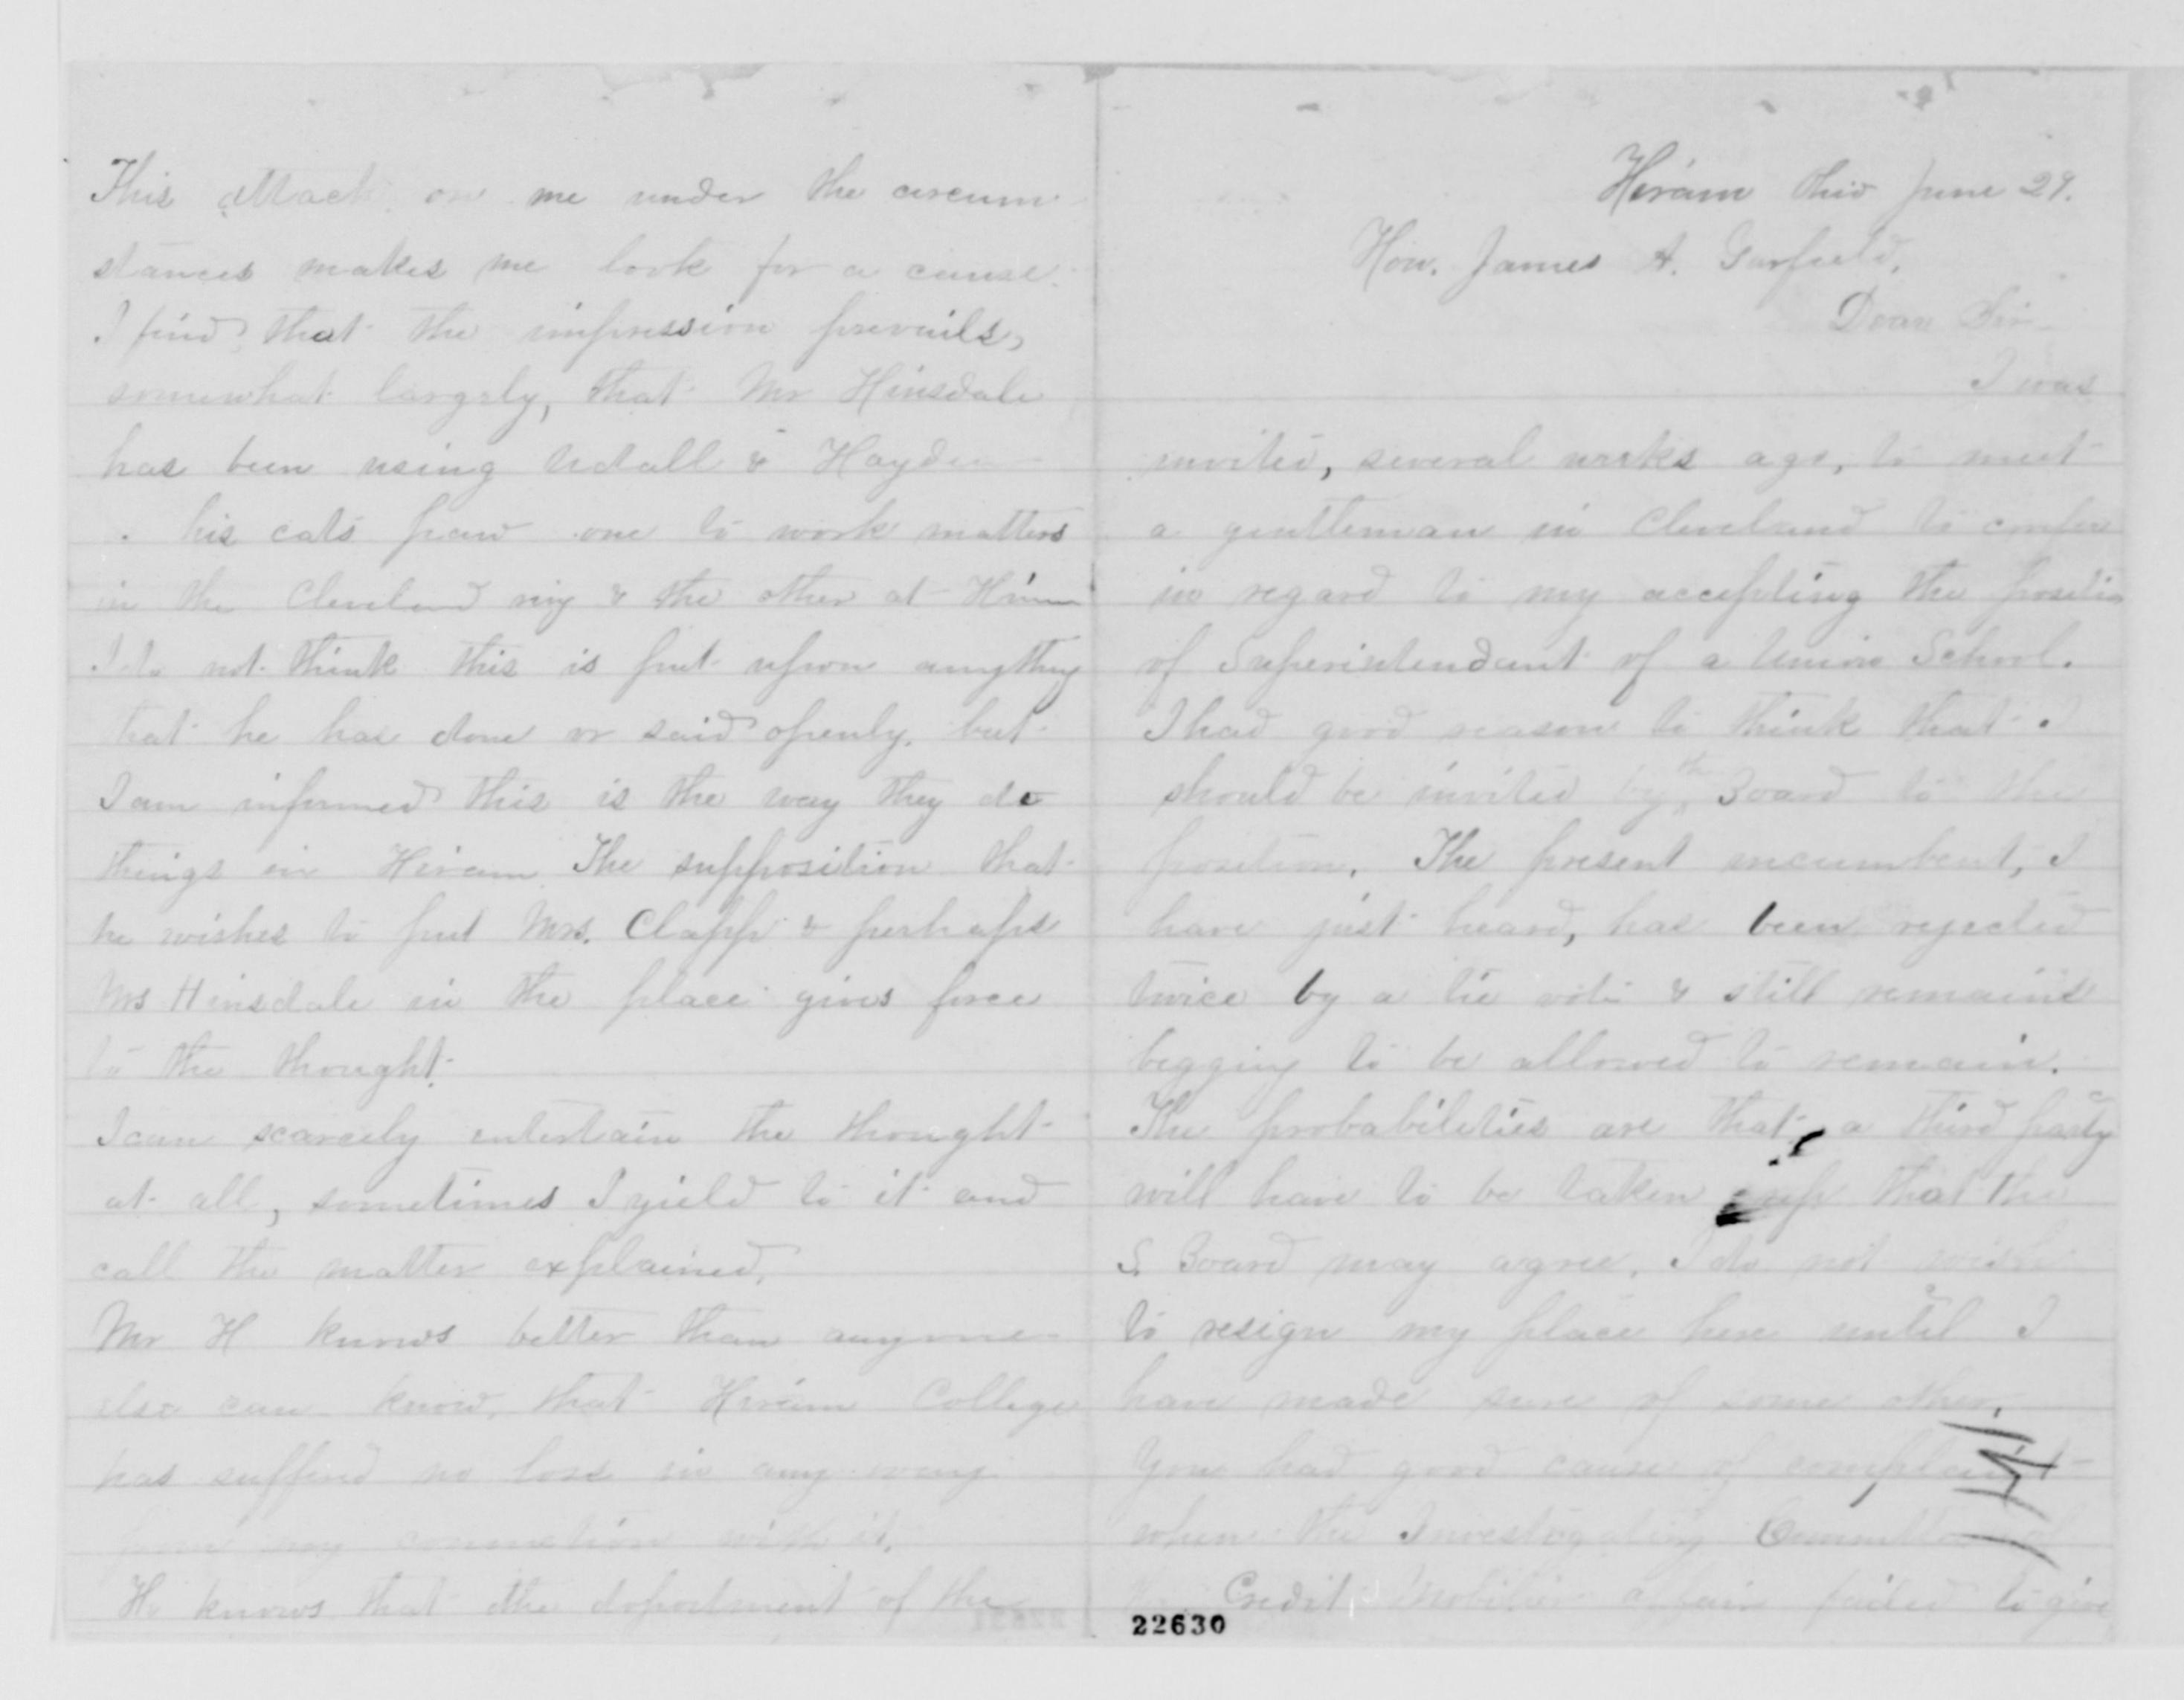 Hiram Ohio June 29.
Hon. James A. Garfield,
Dear Sir
I was
invited, several weeks ago, to meet
a gentleman in Cleveland to confer
in regard to my accepting the position
of Superintendant of a Union School.
I had good reason to think that I
should be invited by the Board to the
position. The present incumbent, I
have just heard, has been rejected
twice by a tie vote & still remains
begging to be allowed to remain.
The probabilities are that a third party
will have to be taken up that the
S. Board may agree. I do not wish
to resign my place here until I
have made sure of some other.
You had good cause of complaint
when the Investigating Committee of
the Credit Mobilier affair failed to give
22630
This attack on me under the circum
stances makes me look for a cause.
I find that the impression prevails,
somewhat largely, that Mr Hinsdale
has been using Udall & Hayden
his cats paw one to work matters
in the Cleveland ring & the other at Hiram
I do not think this is put upon anything
that he has done or said openly. but
I am informed this is the way they do
things in Hiram. The supposition that
he wishes to put Mrs. Clapp & perhaps
Mrs Hinsdale in the place gives force
to the thought.
I can scarcely entertain the thought
at all, sometimes I yield to it and
call the matter explained.
Mr H knows better than anyone
else can know, that Hiram College
has sufferd no loss in any way
from my connection with it.
He knows that the deportment of the